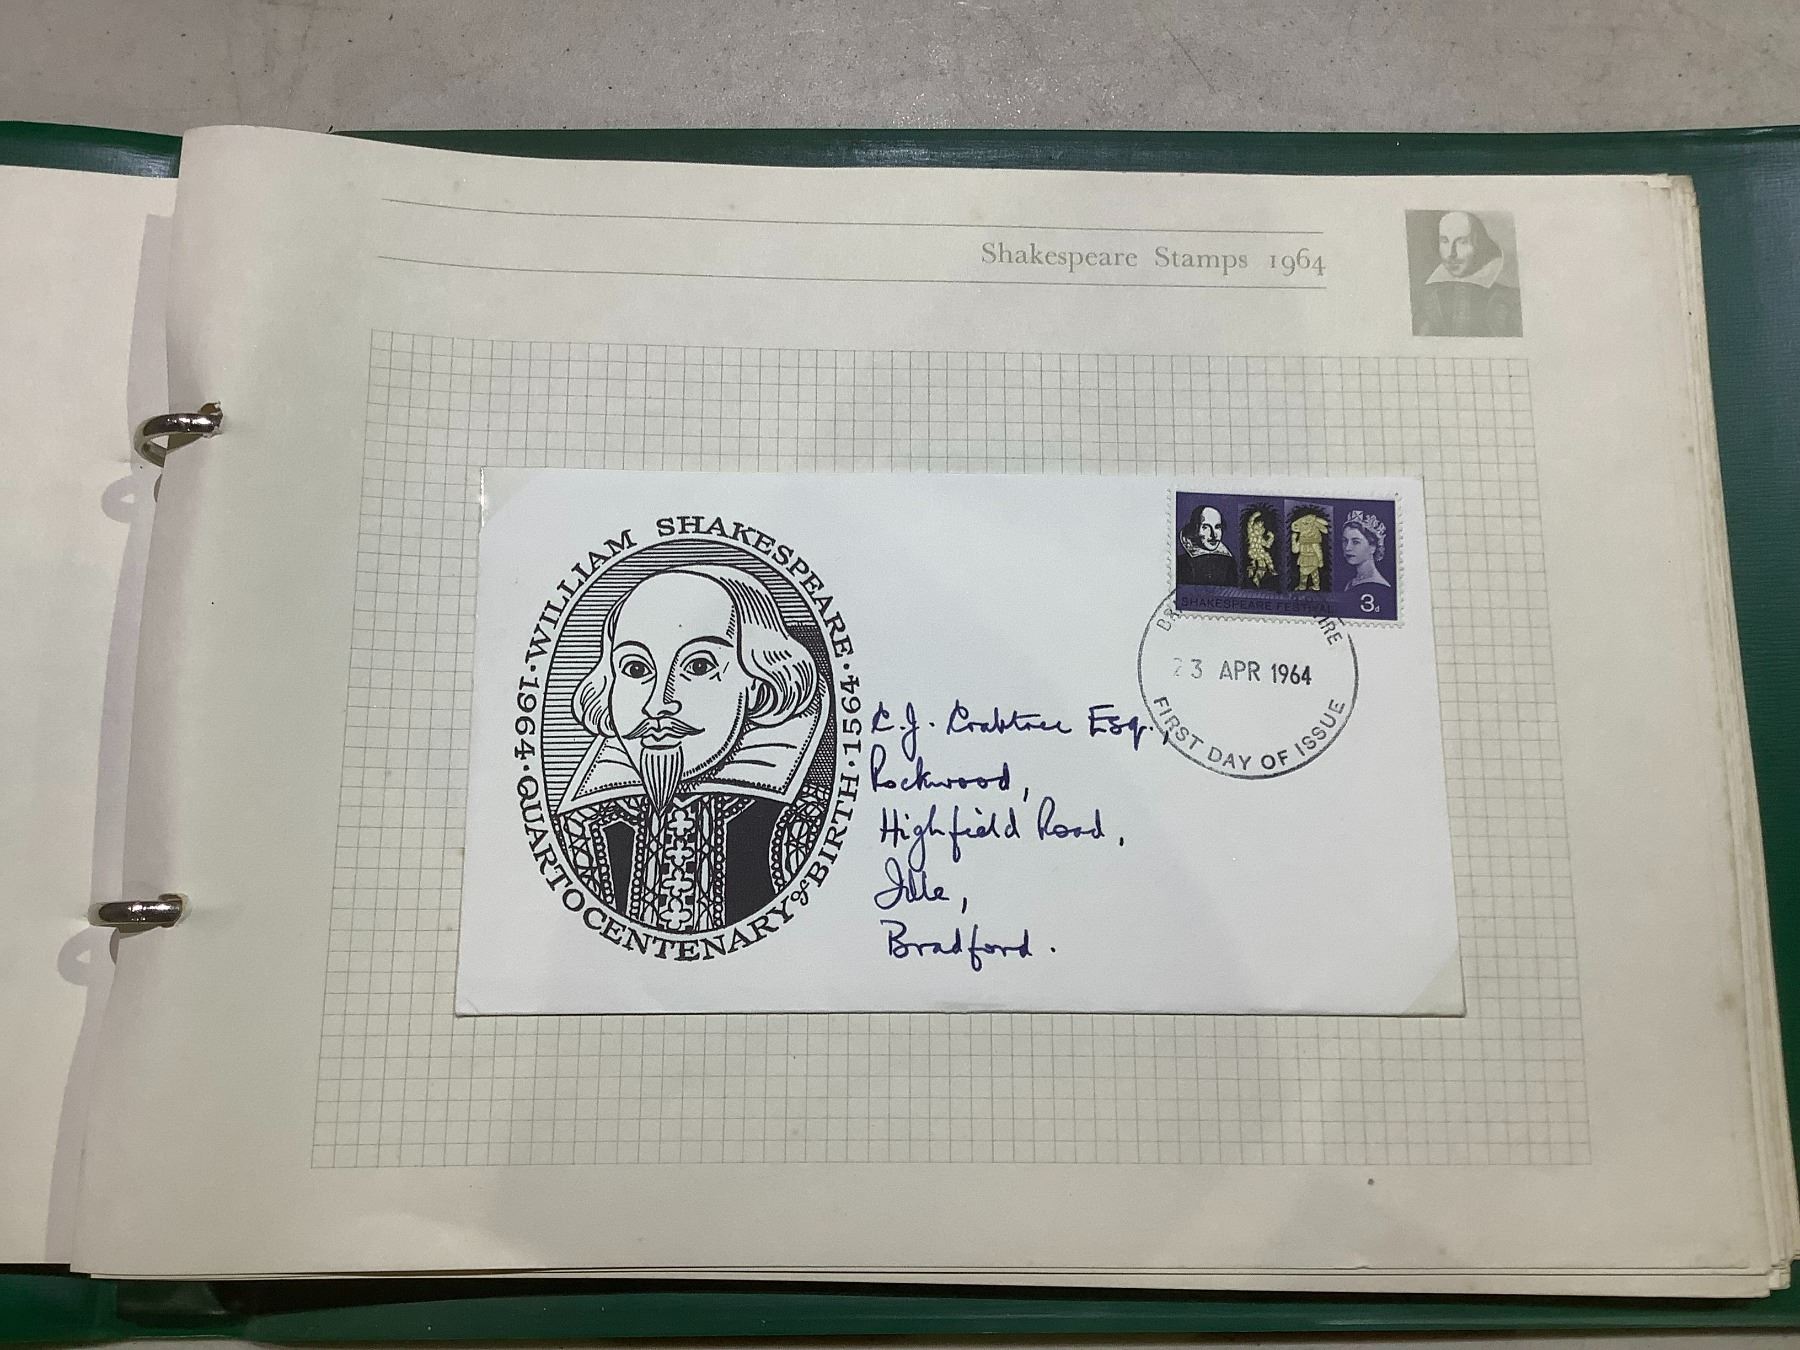 Shakespeare Stamps 1964
·WILLIAM SHAKESPEARE·
1564·
1964·QUARTOCENTENARY of BIRTH·
SHAKESPEARE FESTIVAL 3d
23 APR 1964
FIRST DAY OF ISSUE
C.J. Crabtree Esq.,
Rockwood,
Highfield Road,
Idle,
Bradford.